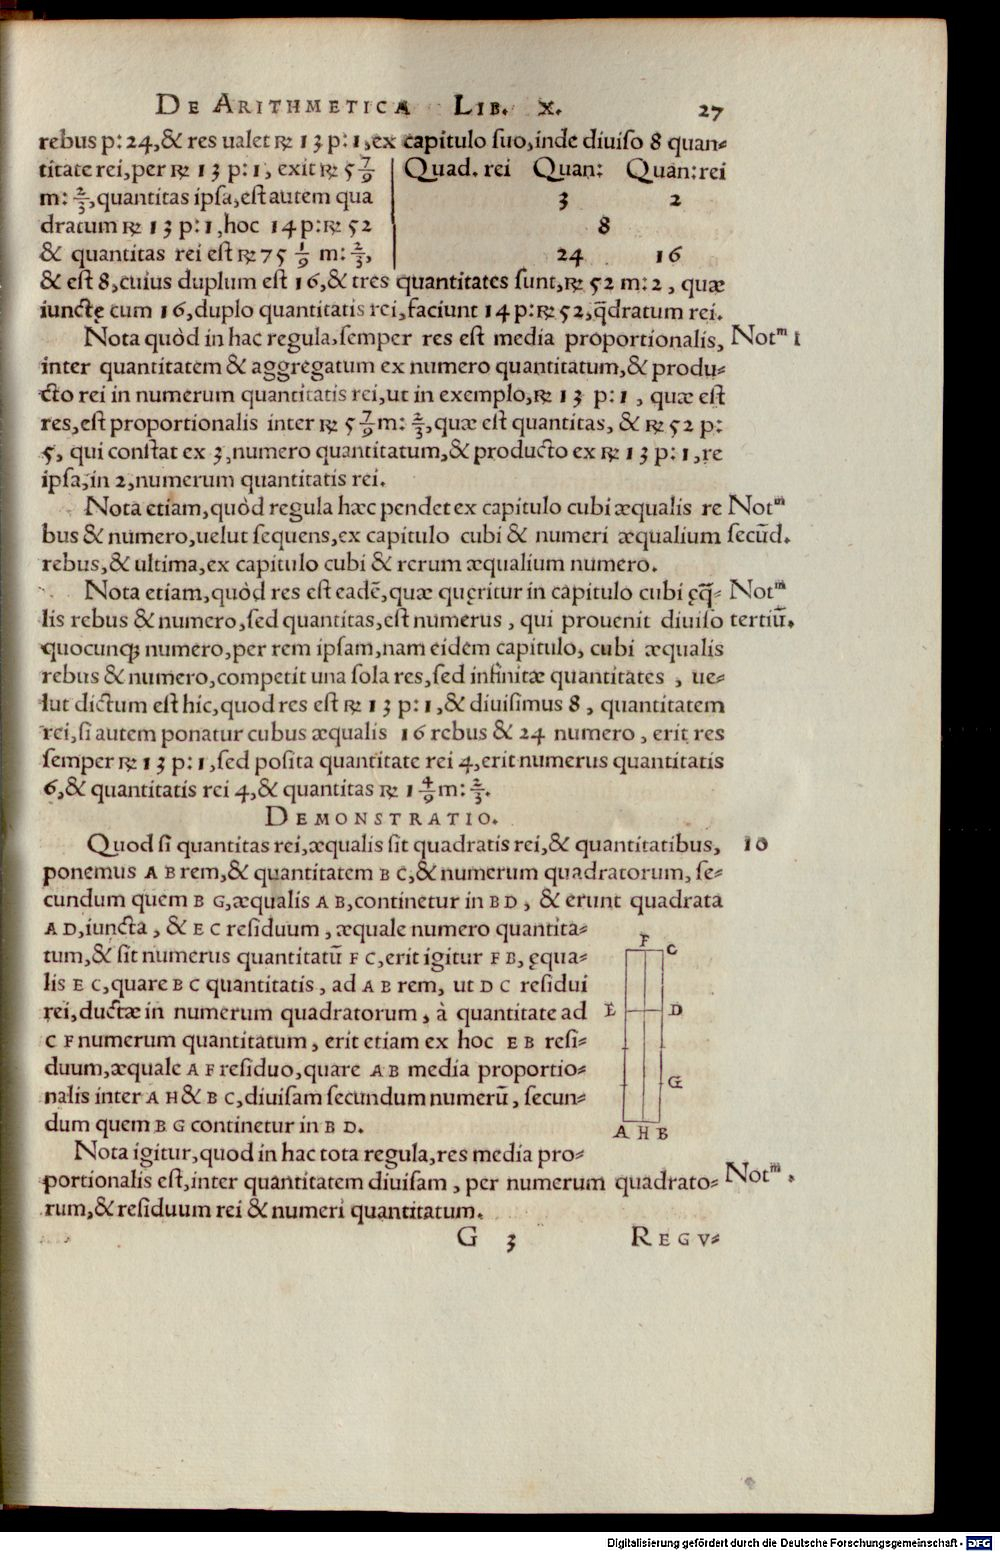 DE ARITHMETICA LIB. X. 27
rebus p: 24, & res ualet ℞ 13 p: 1, ex capitulo suo, inde diuiso 8 quan⸗
titate rei, per ℞ 13 p: 1, exit ℞ 5 7/9 | Quad. rei Quan: Quan: rei
m: 2/3, quantitas ipsa, est autem qua 3 2
dratum ℞ 13 p: 1, hoc 14 p: ℞ 52 8
& quantitas rei est ℞ 75 1/9 m: 2/3, 24 16
& est 8, cuius duplum est 16, & tres quantitates sunt, ℞ 52 m: 2, quæ
iunctę cum 16, duplo quantitatis rei, faciunt 14 p: ℞ 52, q̃dratum rei.
Nota quòd in hac regula, semper res est media proportionalis, Notᵐ 1
inter quantitatem & aggregatum ex numero quantitatum, & produ⸗
cto rei in numerum quantitatis rei, ut in exemplo, ℞ 13 p: 1, quæ est
res, est proportionalis inter ℞ 5 7/9 m: 2/3, quæ est quantitas, & ℞ 52 p:
5, qui constat ex 3, numero quantitatum, & producto ex ℞ 13 p: 1, re
ipsa, in 2, numerum quantitatis rei.
Nota etiam, quòd regula hæc pendet ex capitulo cubi æqualis re Notᵐ
bus & numero, uelut sequens, ex capitulo cubi & numeri æqualium secũd.
rebus, & ultima, ex capitulo cubi & rerum æqualium numero.
Nota etiam, quòd res est eadẽ, quæ quęritur in capitulo cubi ęq̃⸗ Notᵐ
lis rebus & numero, sed quantitas, est numerus, qui prouenit diuiso tertiũ.
quocunq; numero, per rem ipsam, nam eidem capitulo, cubi æqualis
rebus & numero, competit una sola res, sed infinitæ quantitates, ue⸗
lut dictum est hic, quod res est ℞ 13 p: 1, & diuisimus 8, quantitatem
rei, si autem ponatur cubus æqualis 16 rebus & 24 numero, erit res
semper ℞ 13 p: 1, sed posita quantitate rei 4, erit numerus quantitatis
6, & quantitatis rei 4, & quantitas ℞ 1 4/9 m: 2/3.
DEMONSTRATIO.
Quod si quantitas rei, æqualis sit quadratis rei, & quantitatibus, 10
ponemus A B rem, & quantitatem B C, & numerum quadratorum, se⸗
cundum quem B G, æqualis A B, continetur in B D, & erunt quadrata
A D, iuncta, & E C residuum, æquale numero quantita⸗
tum, & sit numerus quantitatũ F C, erit igitur F B, ęqua⸗
lis E C, quare B C quantitatis, ad A B rem, ut D C residui
rei, ductæ in numerum quadratorum, à quantitate ad
C F numerum quantitatum, erit etiam ex hoc E B resi⸗
duum, æquale A F residuo, quare A B media proportio⸗
nalis inter A H & B C, diuisam secundum numerũ, secun⸗
dum quem B G continetur in B D.
F C
E D
G
A H B
Nota igitur, quod in hac tota regula, res media pro⸗
portionalis est, inter quantitatem diuisam, per numerum quadrato⸗ Notᵐ.
rum, & residuum rei & numeri quantitatum.
G 3 REGV⸗
Digitalisierung gefördert durch die Deutsche Forschungsgemeinschaft - DFG